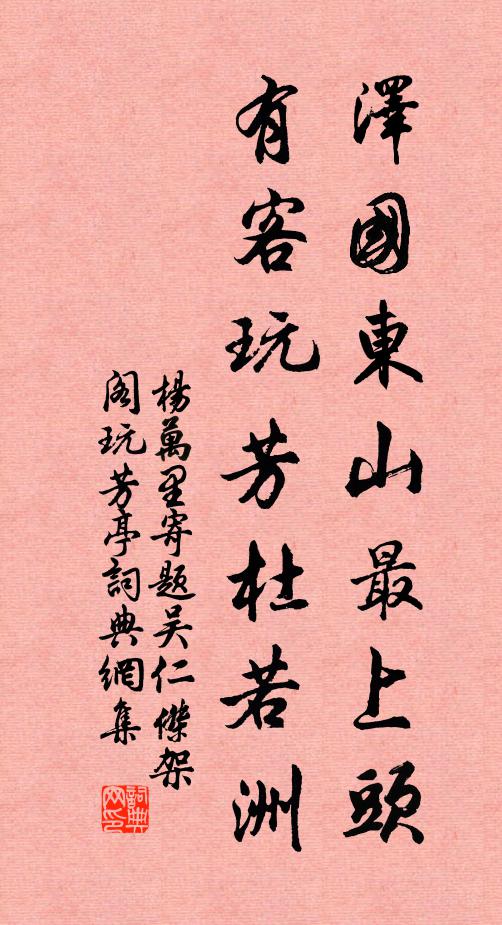 澤國東山最上頭
有客玩芳杜若洲
楊萬里寄題吳仁傑架
閣玩芳亭詞典網集
詞典
网印